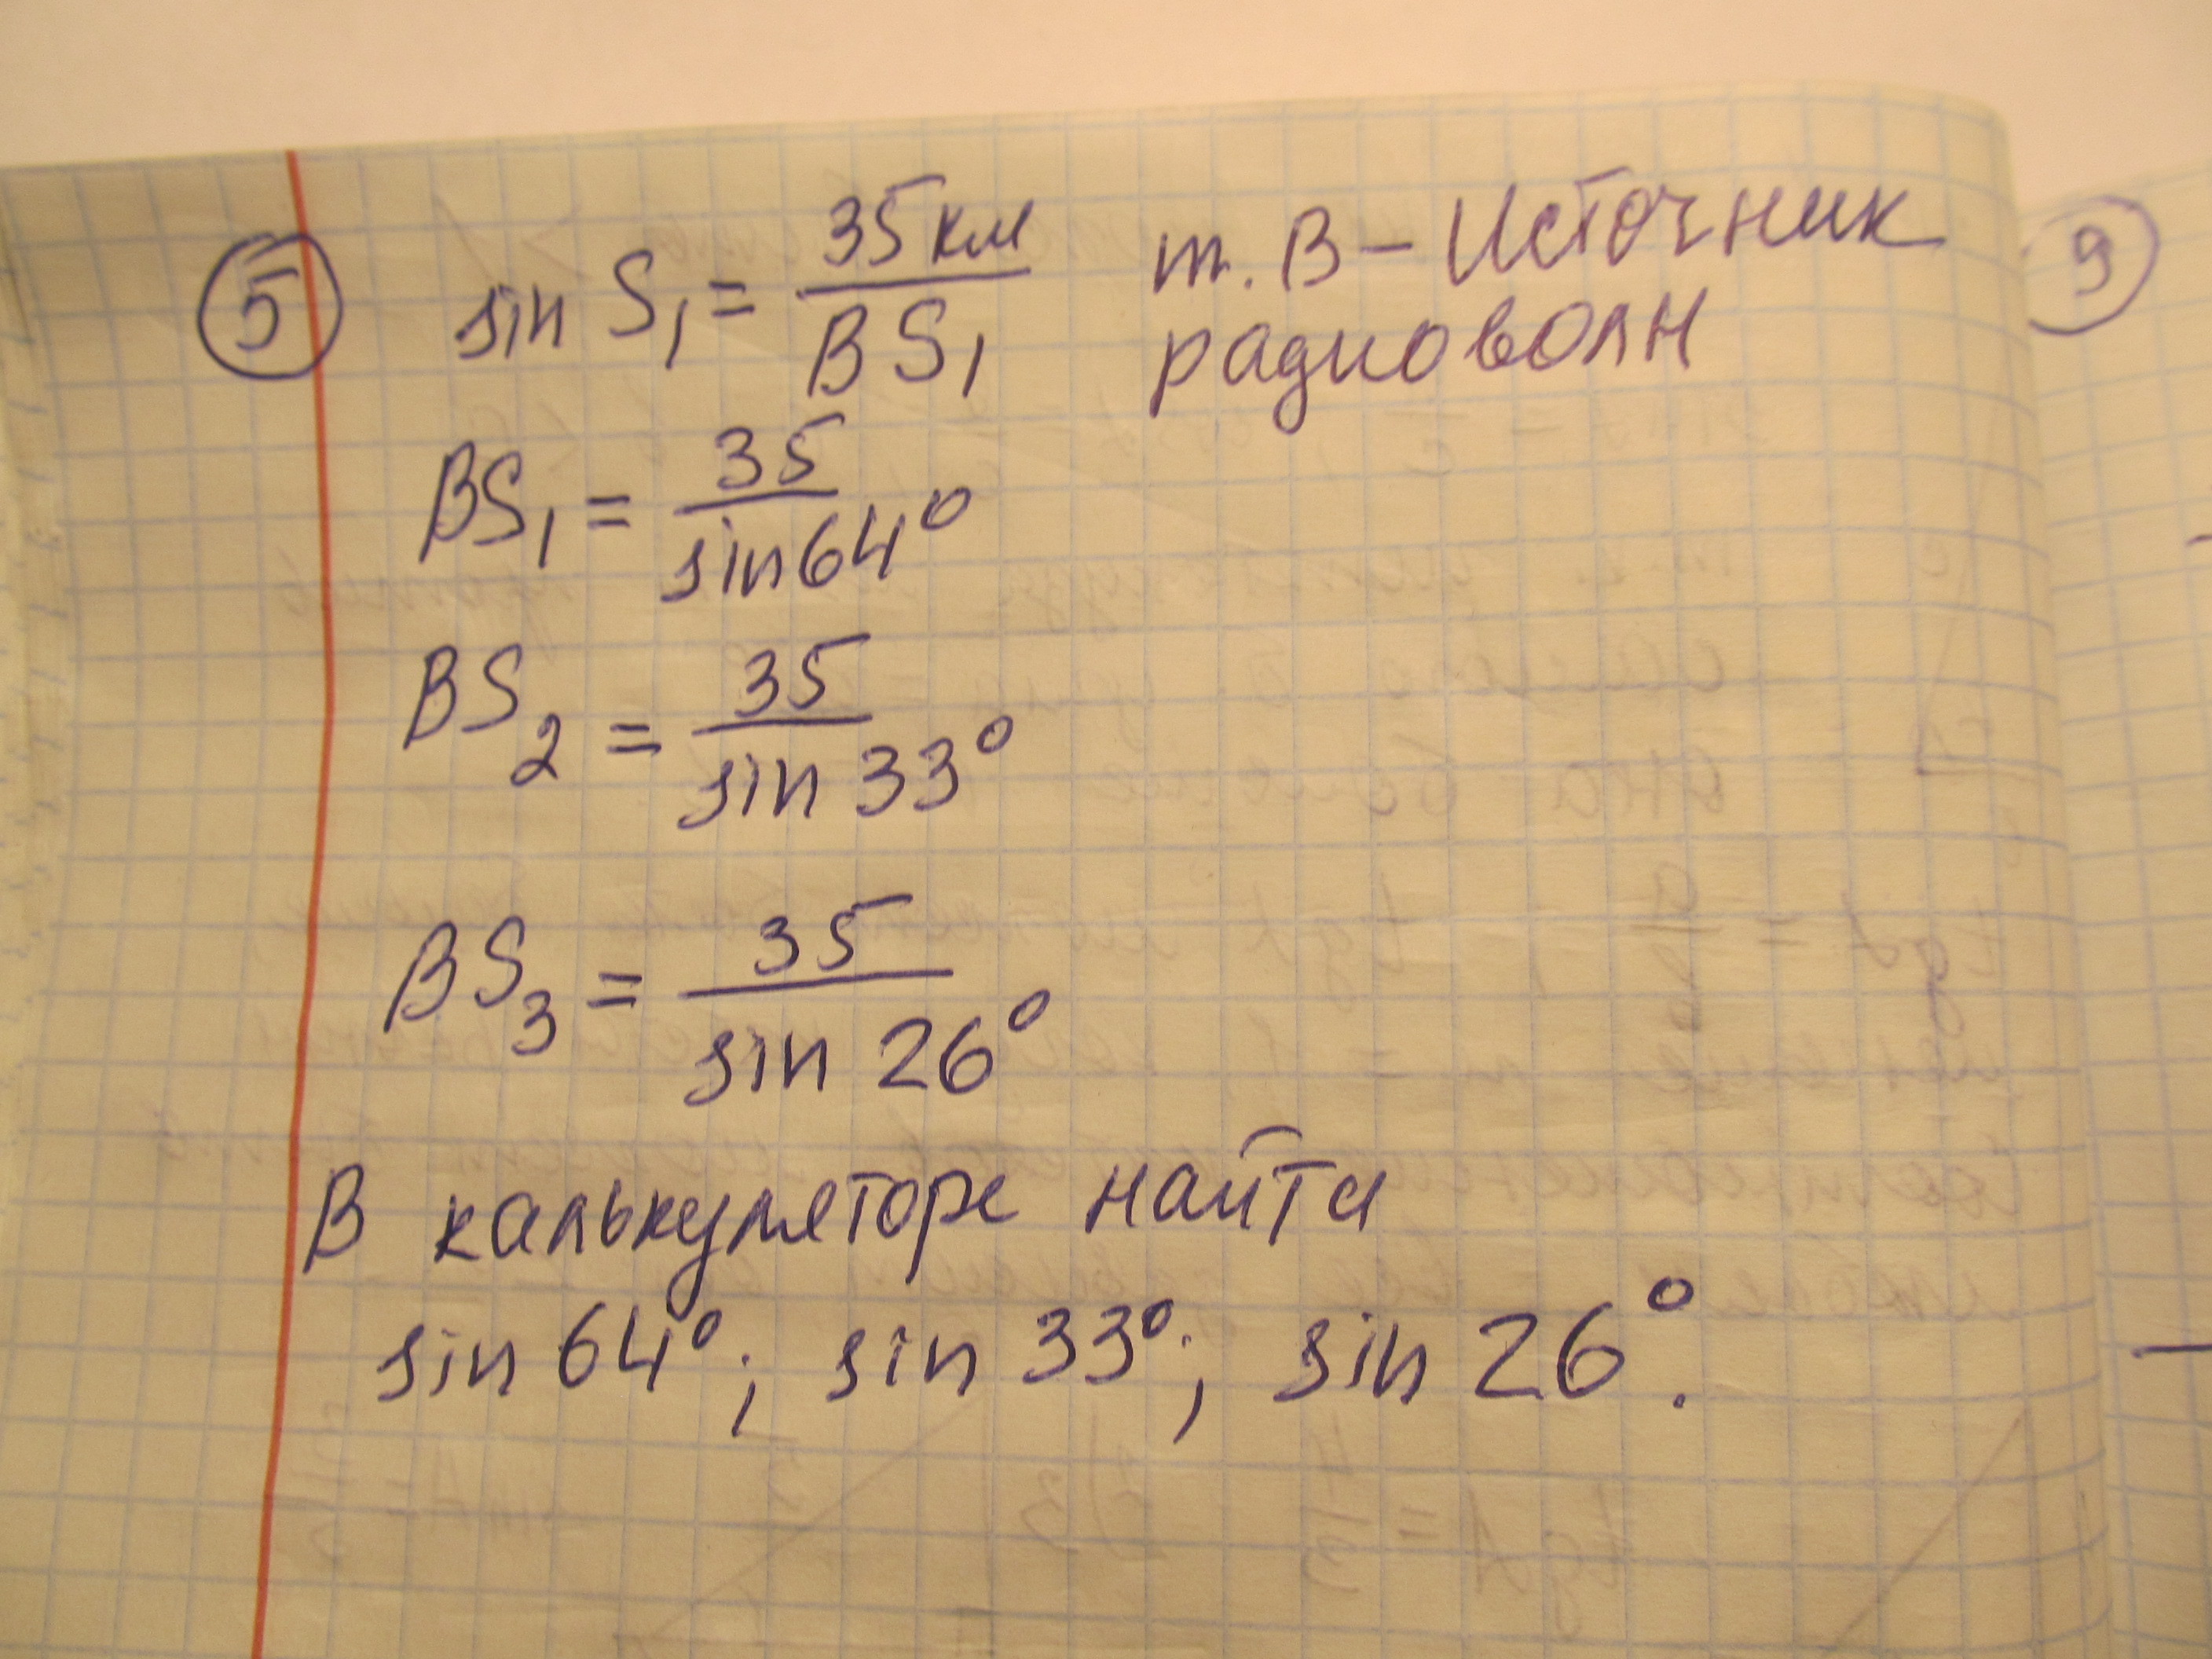 5 sin S₁ = 35 км / BS₁ т. В – Источник
радиоволн
BS₁ = 35 / sin 64°
BS₂ = 35 / sin 33°
BS₃ = 35 / sin 26°
В калькуляторе найти
sin 64°; sin 33°; sin 26°.
9